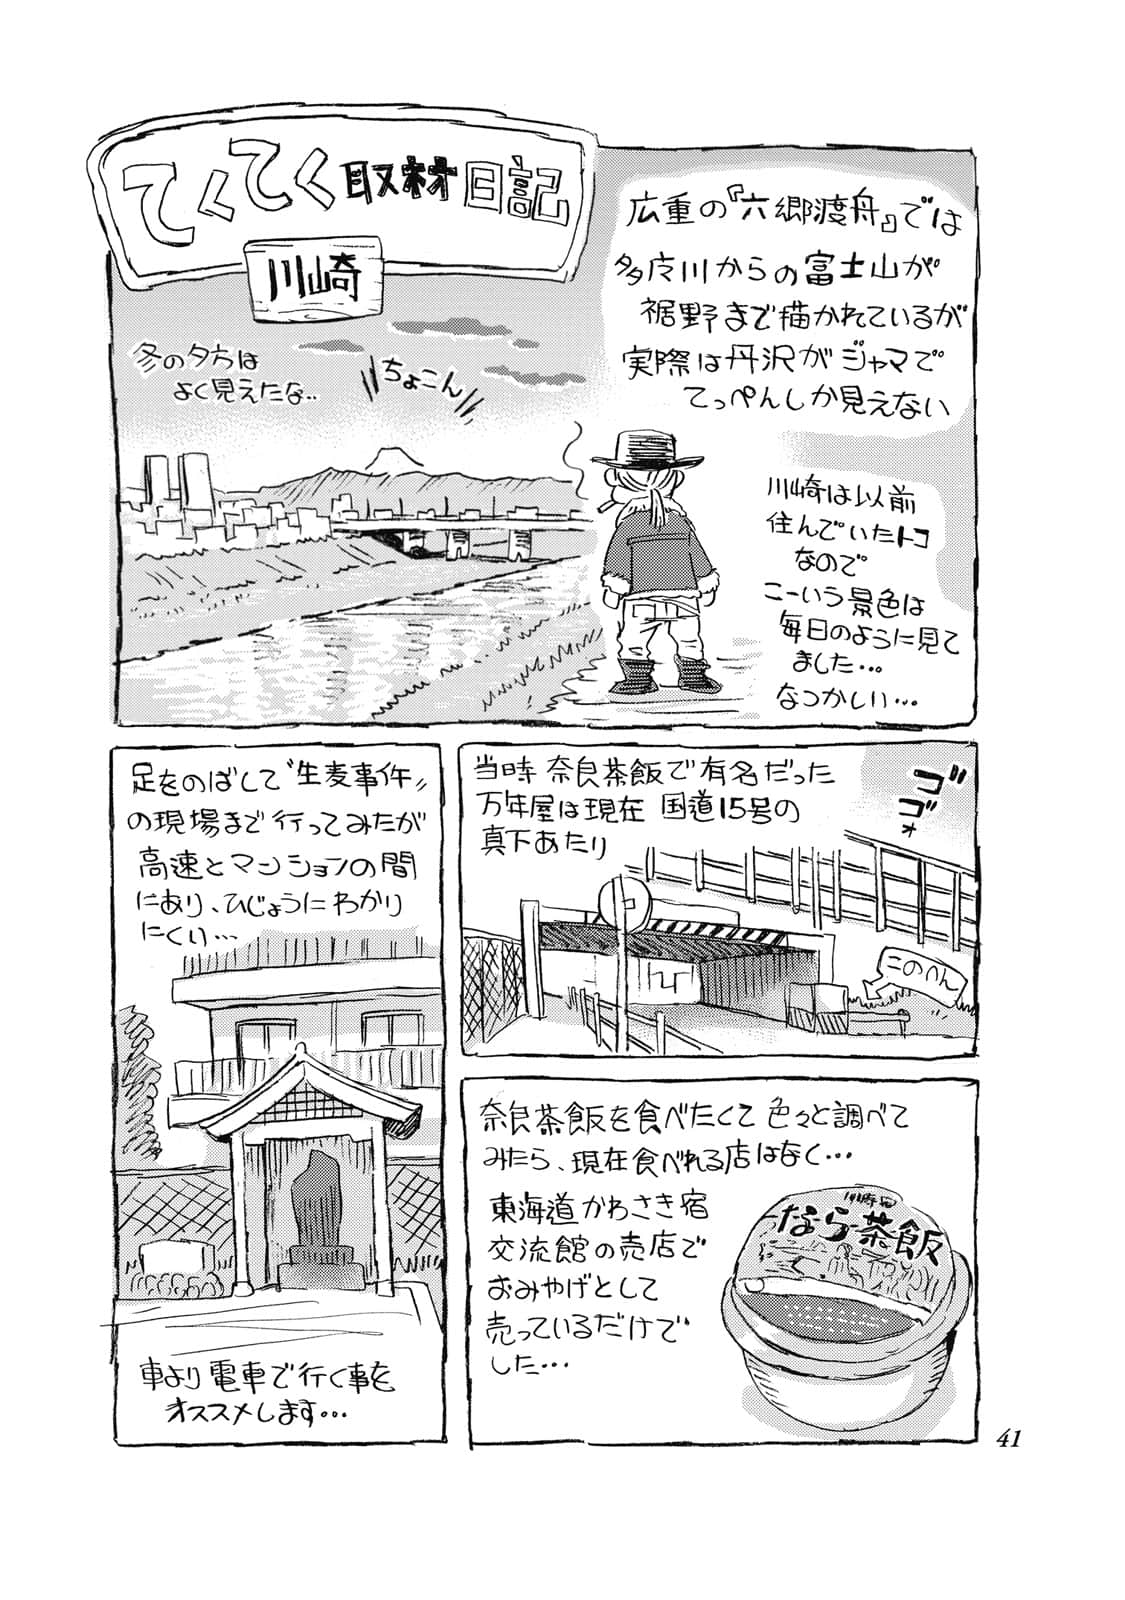 てくてく取材日記
川崎
広重の『六郷渡舟』では
多摩川からの富士山が
裾野まで描かれているが
実際は丹沢がジャマで
てっぺんしか見えない
冬の夕方は
よく見えたな‥
ちょこん
川崎は以前
住んでいたトコ
なので
こーいう景色は
毎日のように見て
ました…
なつかしい…
当時 奈良茶飯で有名だった
万年屋は現在 国道15号の
真下あたり
ゴゴォ
このへん
足をのばして〝生麦事件〟
の現場まで行ってみたが
高速とマンションの間
にあり、ひじょうにわかり
にくい…
車より電車で行く事を
オススメします…
奈良茶飯を食べたくて 色々と調べて
みたら、現在食べれる店はなく…
東海道かわさき宿
交流館の売店で
おみやげとして
売っているだけで
した…
なら茶飯
41